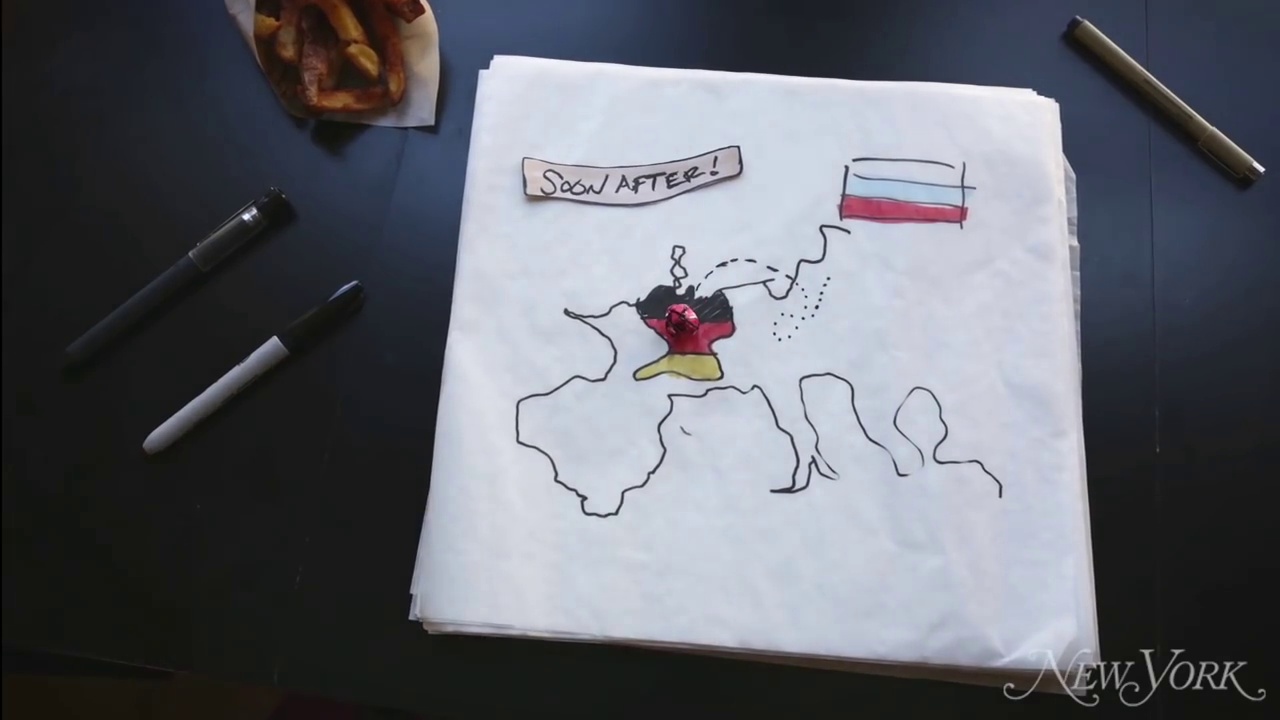 SOON AFTER!
NEW YORK